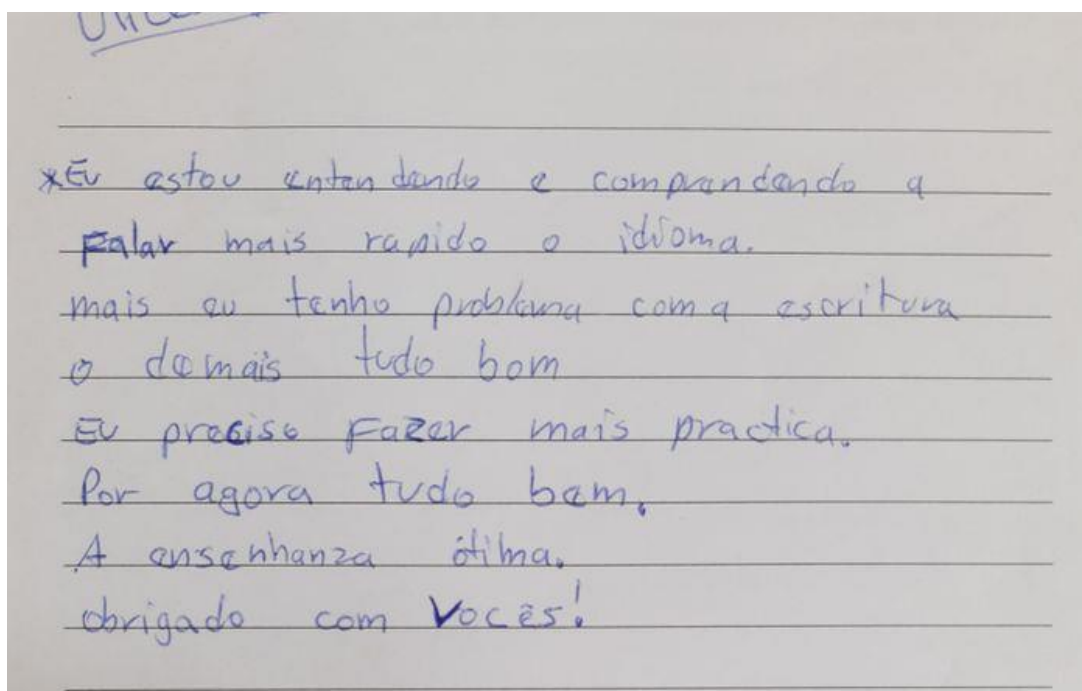 *Eu estou entendendo e comprendendo a
Falar mais rapido o idioma.
mais eu tenho problema com a escritura
o demais tudo bom
Eu preciso Fazer mais practica.
Por agora tudo bem.
A ensenhanza ótima.
obrigado com Vocês!